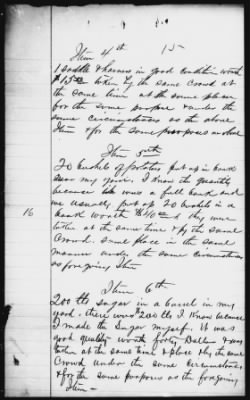 Item 4th 15
1 saddle & harness in good condition worth
$15.00 taken by the same crowd at
the same time at the same place
for the same purpose under the
same circumstances as the above
Item & for the same purposes as above
Item 5th
20 bushels of potatoes put up in bank
near my yard. I know the quantity
because it was a full bank and
we usually put up 20 bushels in a
16 bank worth and they were
taken at the same time & by the same
Crowd. same place in the same
manner under the same circumstances
as foregoing Item
Item 6th
200 lbs sugar in a barrel in my
yard. there was 200 lbs I know because
I made the Sugar myself. it was
good quality worth forty Dollars & was
taken at the same time & place & by the same
Crowd under the same circumstances
& for the same purposes as the foregoing
Item —